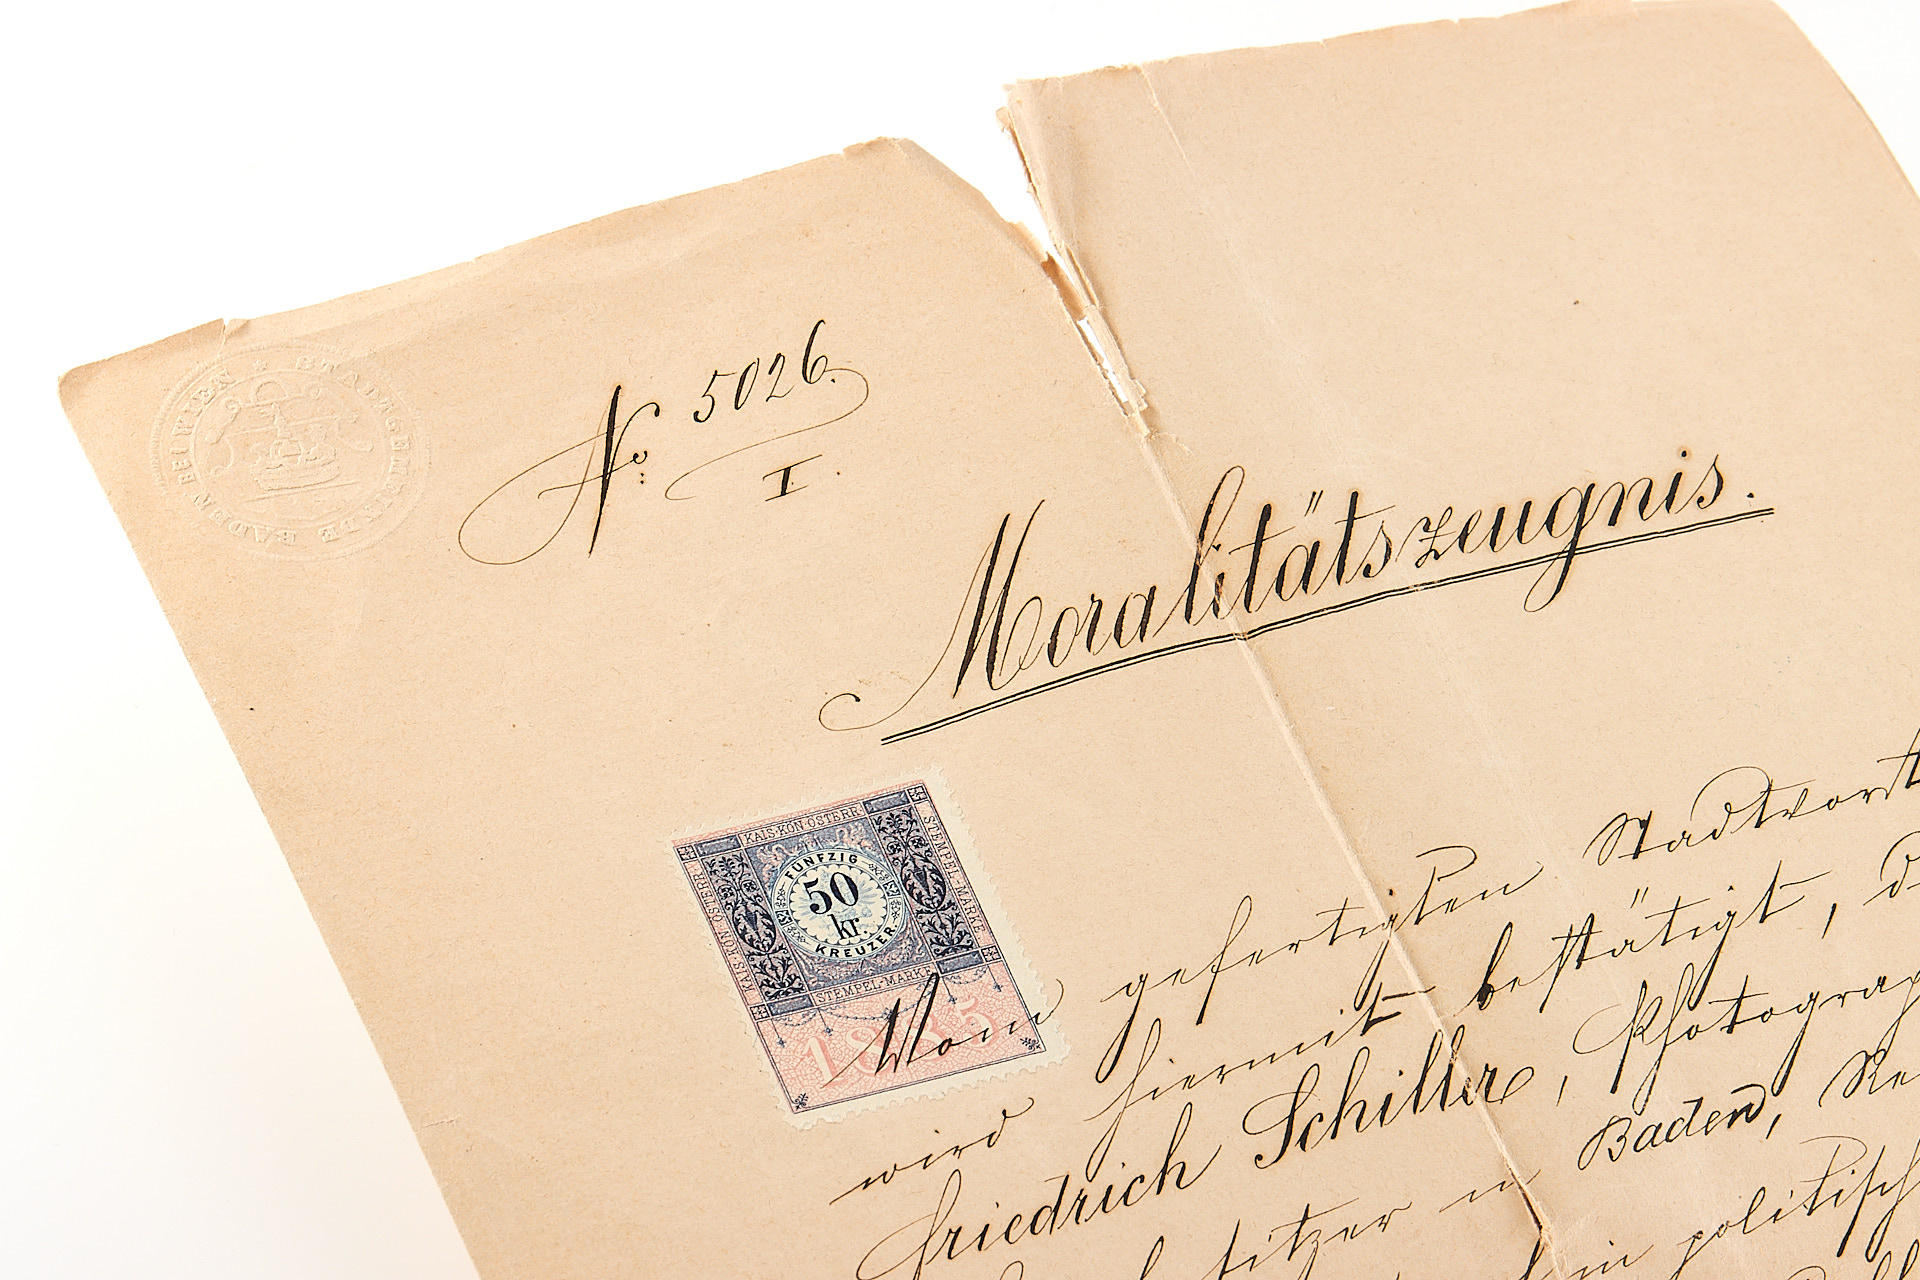 STADTGEMEINDE BADEN BEI WIEN
No 5026.
I.
Moralitätszeugnis.
KAIS. KÖN. ÖSTERR.
STEMPEL-MARKE
KAIS. KÖN. ÖSTERR.
FÜNFZIG
50
kr.
KREUZER
STEMPEL-MARKE
1885
Vom gefertigten Stadtvorst
wird hiermit bestätigt, d
Friedrich Schiller, Photograp
sitzer in Baden, Re
in politisch